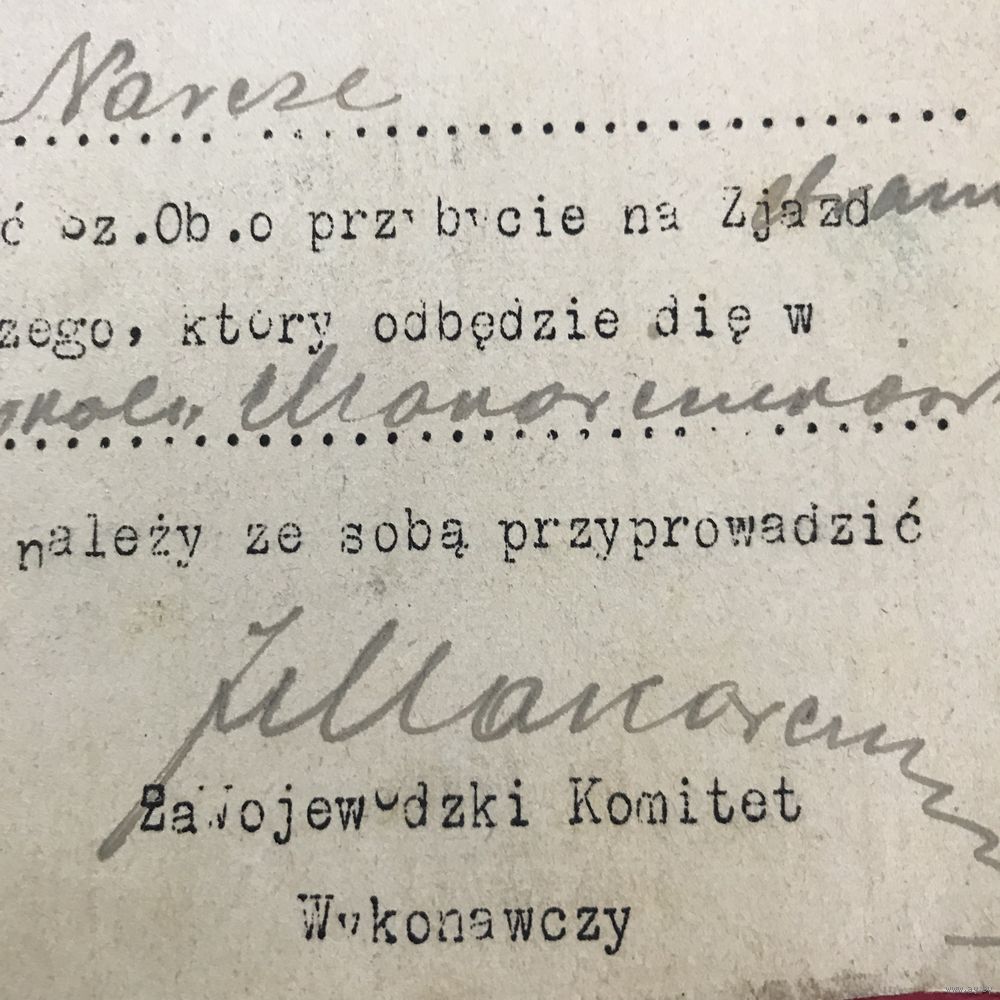 Narcze
ć Sz.Ob.o przybycie na Zjazd
zego, który odbędzie dię w
należy ze sobą przyprowadzić
ZaWojewódzki Komitet
Wykonawczy